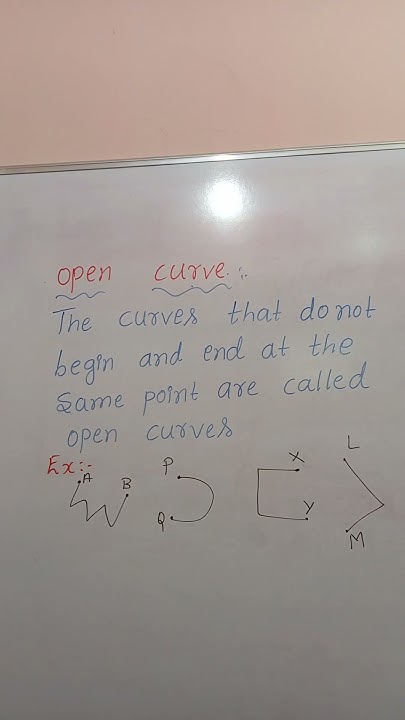 open curve :-
The curves that do not
begin and end at the
same point are called
open curves
Ex:-
A B P Q X Y L M